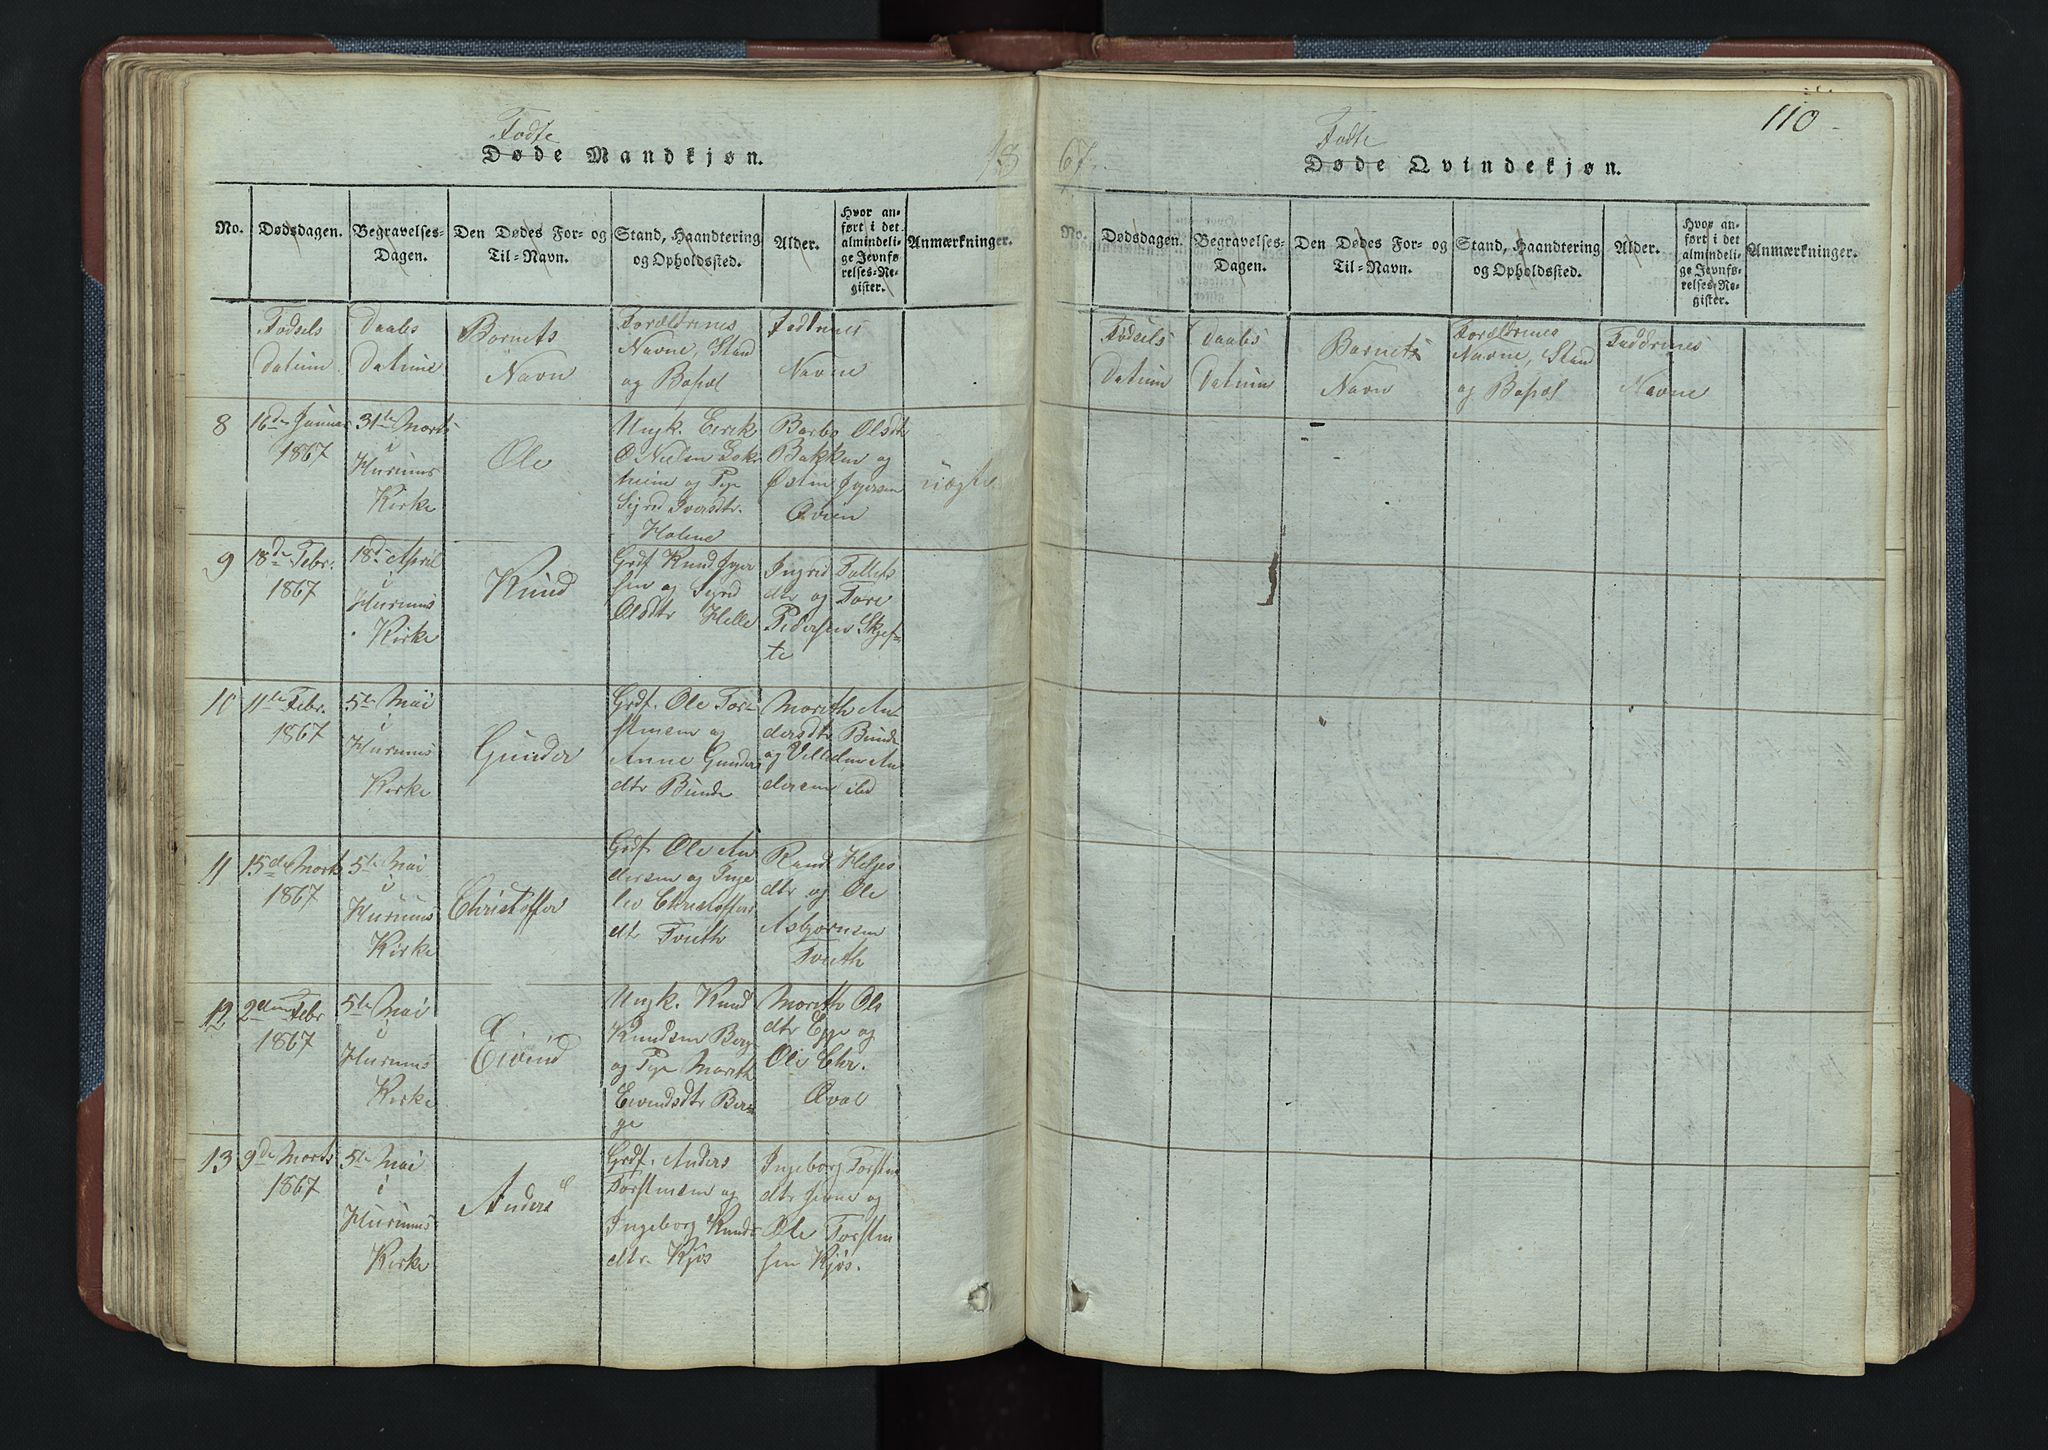 Fødte
Døde Mandkjøn.
18
No.
Dødsdagen.
Begravelses-
Dagen.
Den Dødes For- og
Til-Navn.
Stand, Haandtering
og Opholdssted.
Alder.
Hvor an-
ført i det
almindeli-
ge Jevnfø-
relses-Re-
gister.
Anmærkninger.
Fødsels
Datum
Daabs
Datum
Barnets
Navn
Forældrenes
Navne, Stand
og Bopæl
Faddrenes
Navne
8
16de Januar
1867
31te Marts
i
Hurums
Kirke
Ole
Ungk. Eirik
O Nielsen
og Pige
Sigrid Iversdtr.
Barbo Olsdtr
Bakken og
Østen
Øvien
uægte
9
18de Febr.
1867
18de April
i
Hurums
Kirke
Knud
Grdf Knud
sen og Sigrid
Olsdtr Helle
Ingrid
dtr og Tore
Pedersen Skjef-
te
10
11te Febr.
1867
5te Mai
i
Hurums
Kirke
Gunder
Grdf. Ole Tor-
stensen og
Anne Gunders
dtr Bunde
Marith An-
dersdtr Bunde
og An
dersen ibd
11
15de Marts
1867
5te Mai
i
Hurums
Kirke
Christoffer
Grdf. Ole An
dersen og Inge
lev Christoffers
dtr Tveith
Rand Helges
dtr og Ole
Asbjørnsen
Tveith
12
2den Febr
1867
5te Mai
i
Hurums
Kirke
Eivend
Ungk. Knud
Knudsen Berge
og Pige Marith
Eivendsdtr Ber-
ge
Marith Ols
dtr Egge og
Ole Chr.
Qvale
13
9de Marts
1867
5te Mai
i
Hurums
Kirke
Anders
Grdf. Anders
Torstensen og
Ingeborg Knuds
dtr. Kjøs
Ingeborg Torstens
dtr og
Ole Torsten
sen Kjøs.
110
67
Fødte
Døde Qvindekjøn.
No.
Dødsdagen.
Begravelses-
Dagen.
Den Dødes For- og
Til-Navn.
Stand, Haandtering
og Opholdssted.
Alder.
Hvor an-
ført i det
almindeli-
ge Jevnfø-
relses-Re-
gister.
Anmærkninger.
Fødsels
Datum
Daabs
Datum
Barnets
Navn
Forældrenes
Navne, Stand
og Bopæl
Faddrenes
Navne